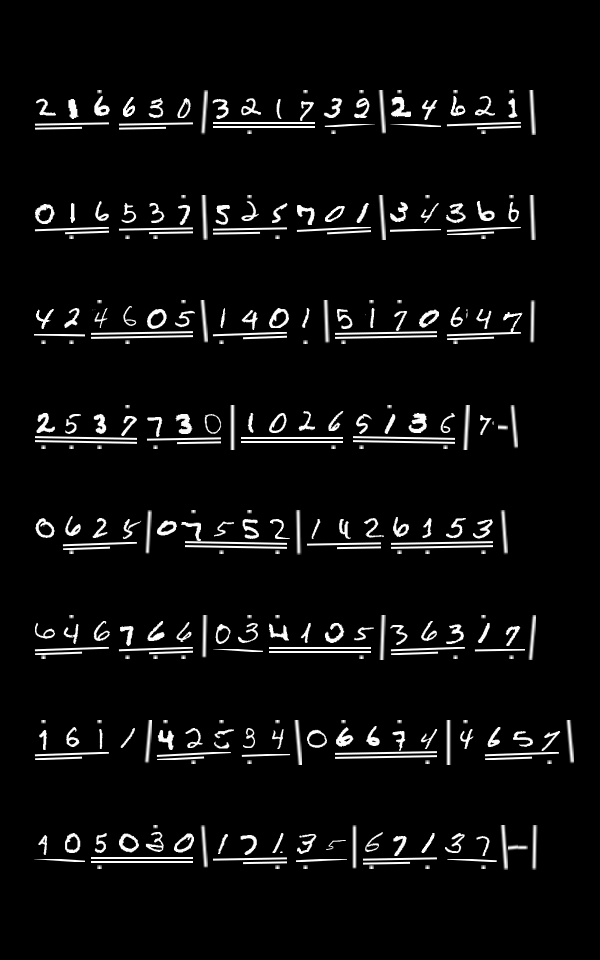 216630|321739|246621|
016537|525701|34366|
424605|1401|5170647|
2537730|10265136|7·-|
0625|07552|1426153|
646766|034105|36317|
1611|42534|06674|4657|
105030|17135|67137|-|